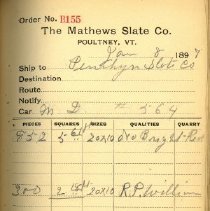 Order No. B155
The Mathews Slate Co.
POULTNEY, VT.
Jan 8 1897
Ship to Penrhyn Slate Co
Destination
Route
Notify
Car M D # 564
PIECES SQUARES SIZES
852 5 20x10 Bright Red
300 2 20x10 R.P. William